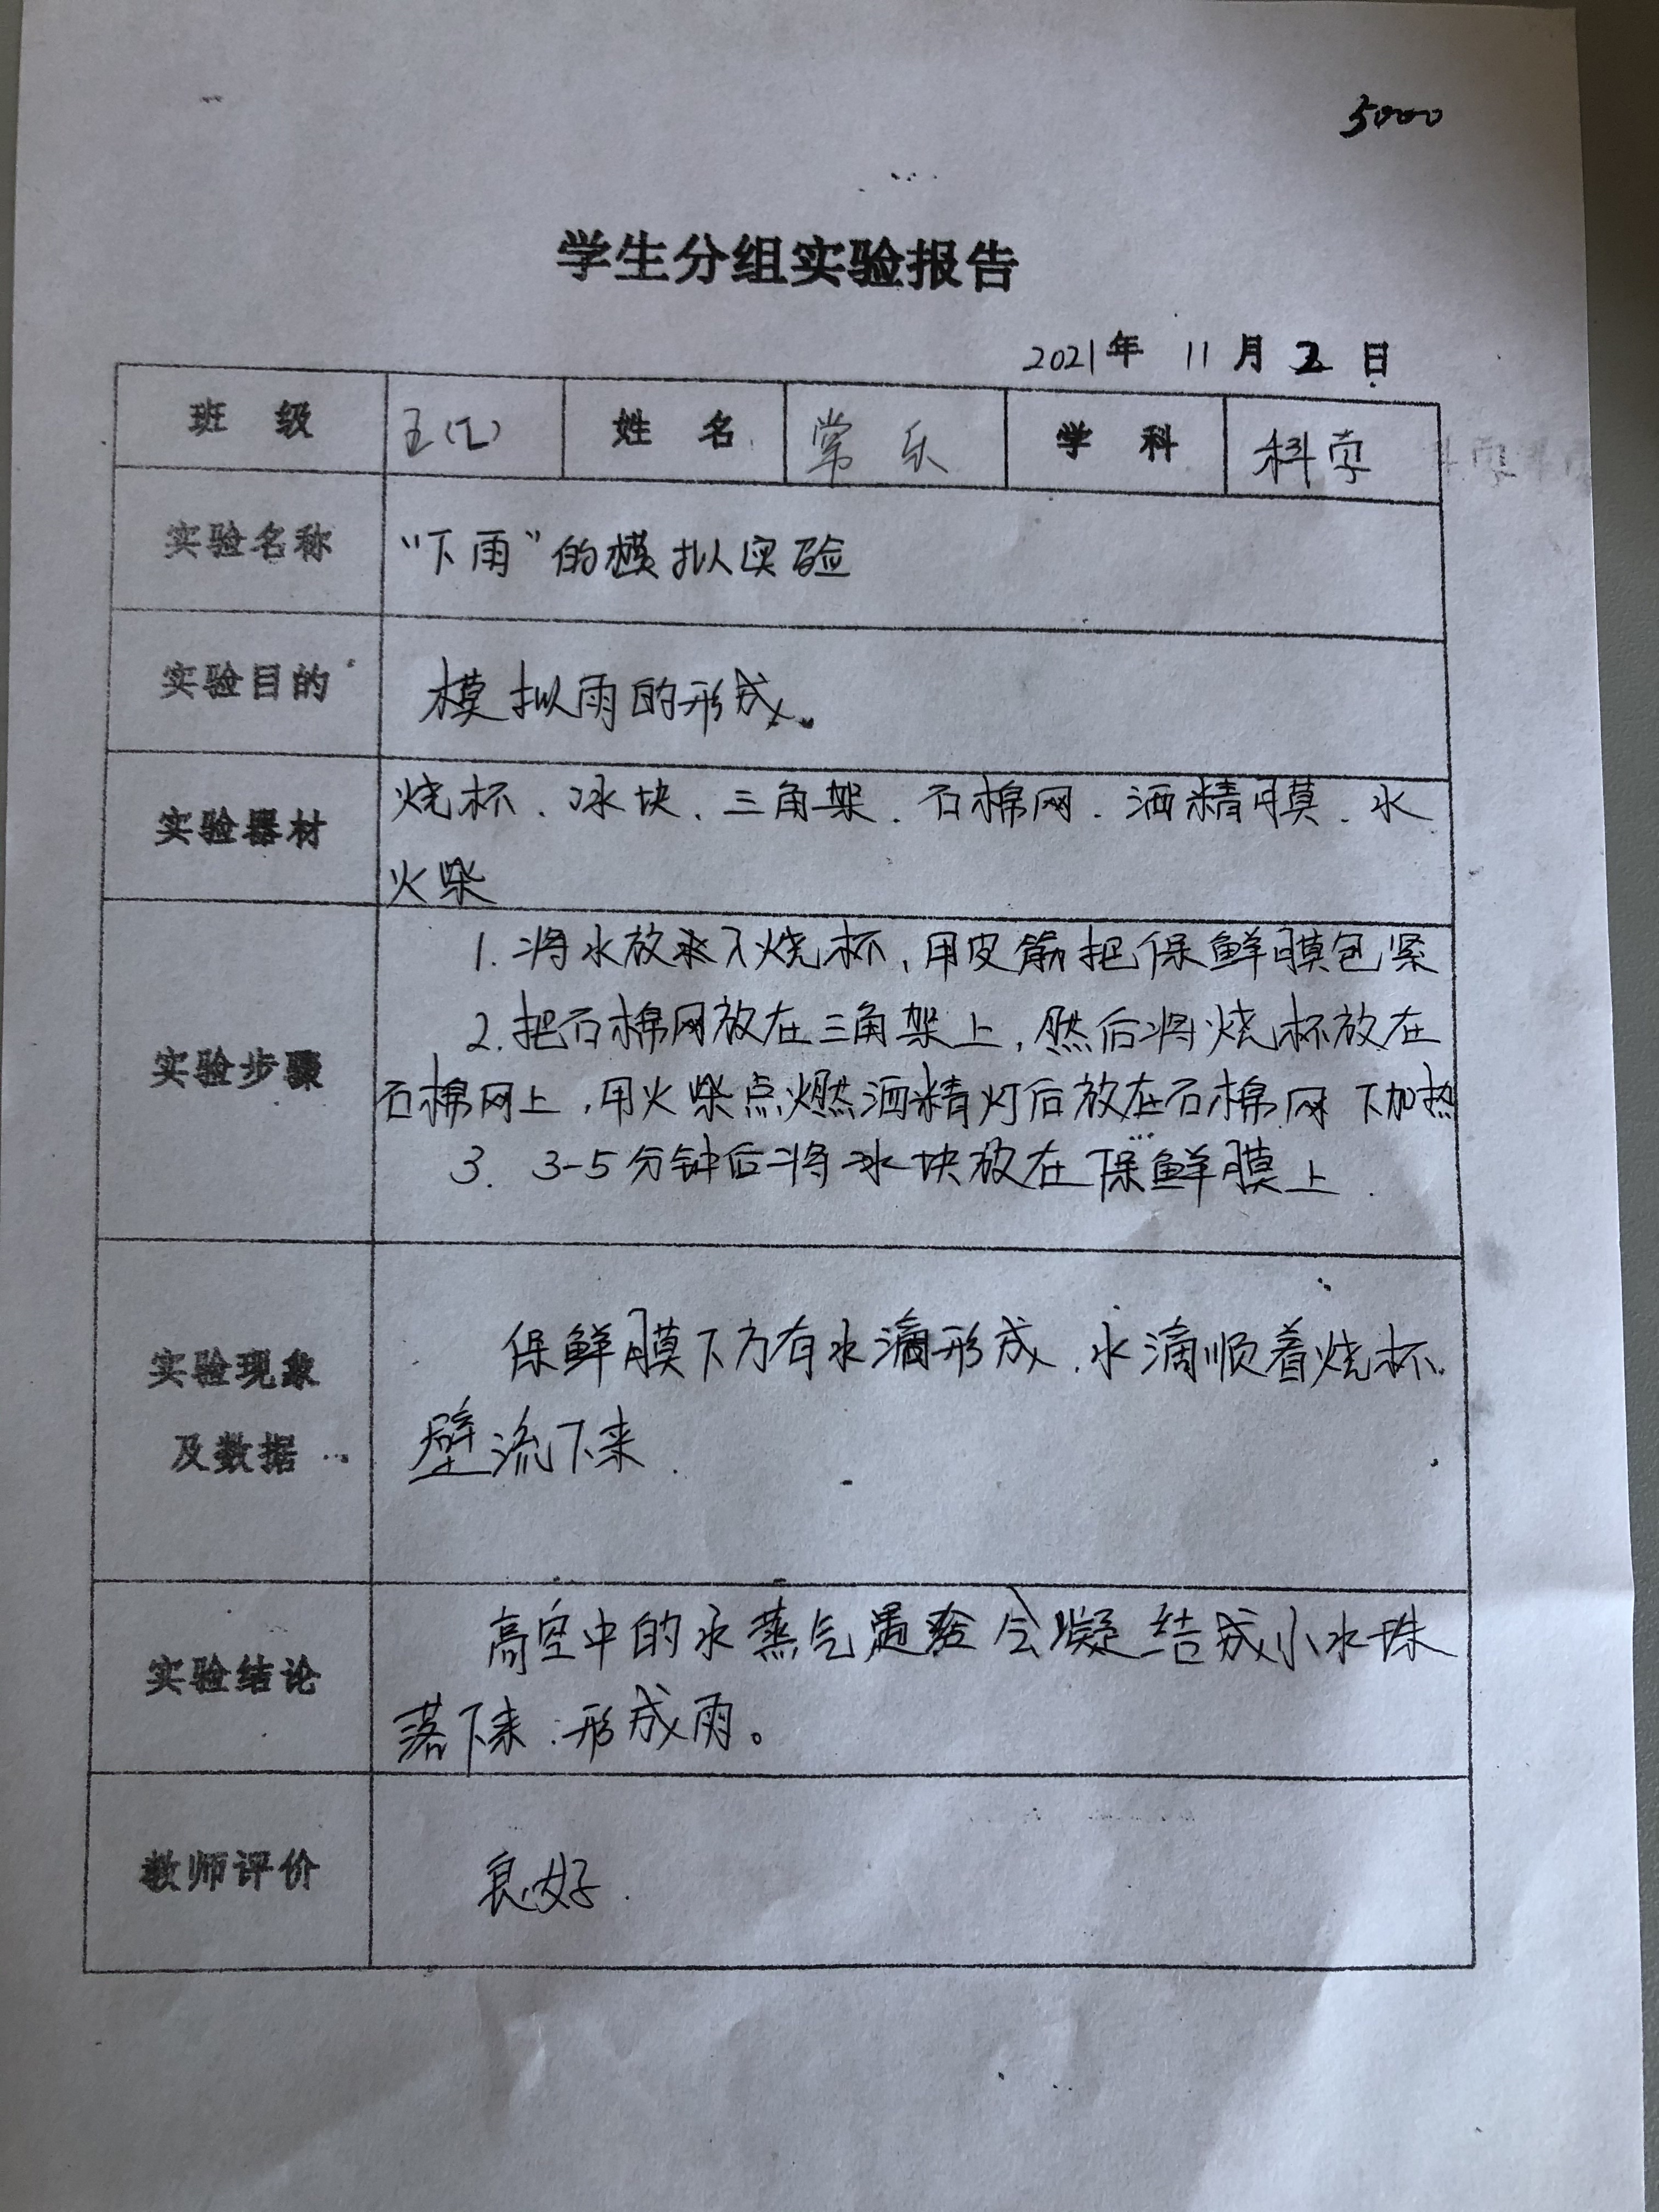 5000
学生分组实验报告
2021年 11月 2 日
班 级 五(乙) 姓 名 常乐 学 科 科学
实验名称 “下雨”的模拟实验
实验目的 模拟雨的形成。
实验器材 烧杯、冰块、三角架、石棉网、酒精膜、水
火柴
实验步骤 1. 将水放入烧杯,用皮筋把保鲜膜包紧
2. 把石棉网放在三角架上,然后将烧杯放在
石棉网上,用火柴点燃酒精灯后放在石棉网下加热
3. 3-5分钟后将冰块放在保鲜膜上.
实验现象及数据 保鲜膜下方有水滴形成,水滴顺着烧杯
壁流下来.
实验结论 高空中的水蒸气遇冷会凝结成小水珠
落下来.形成雨。
教师评价 良好.